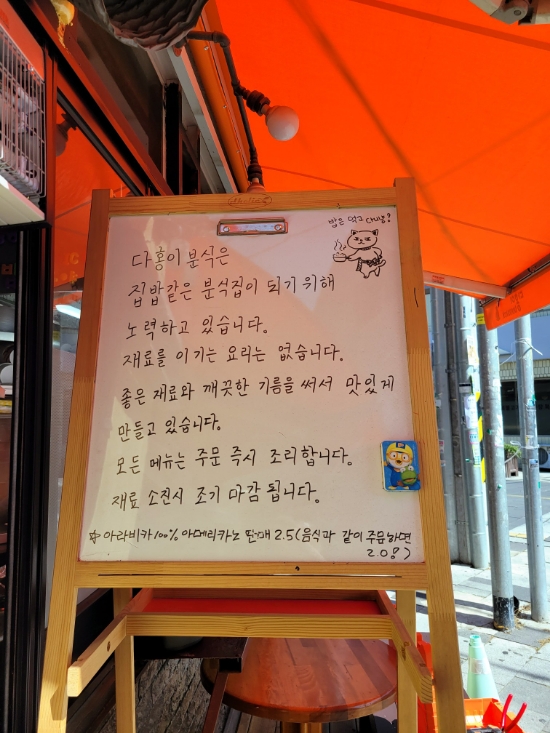 밥은 먹고 다니냥?
다홍이 분식은
집밥같은 분식집이 되기 위해
노력하고 있습니다.
재료를 이기는 요리는 없습니다.
좋은 재료와 깨끗한 기름을 써서 맛있게
만들고 있습니다.
모든 메뉴는 주문 즉시 조리합니다.
재료 소진시 조기 마감 됩니다.
☆ 아라비카 100% 아메리카노 판매 2.5 (음식과 같이 주문하면
2.0!)